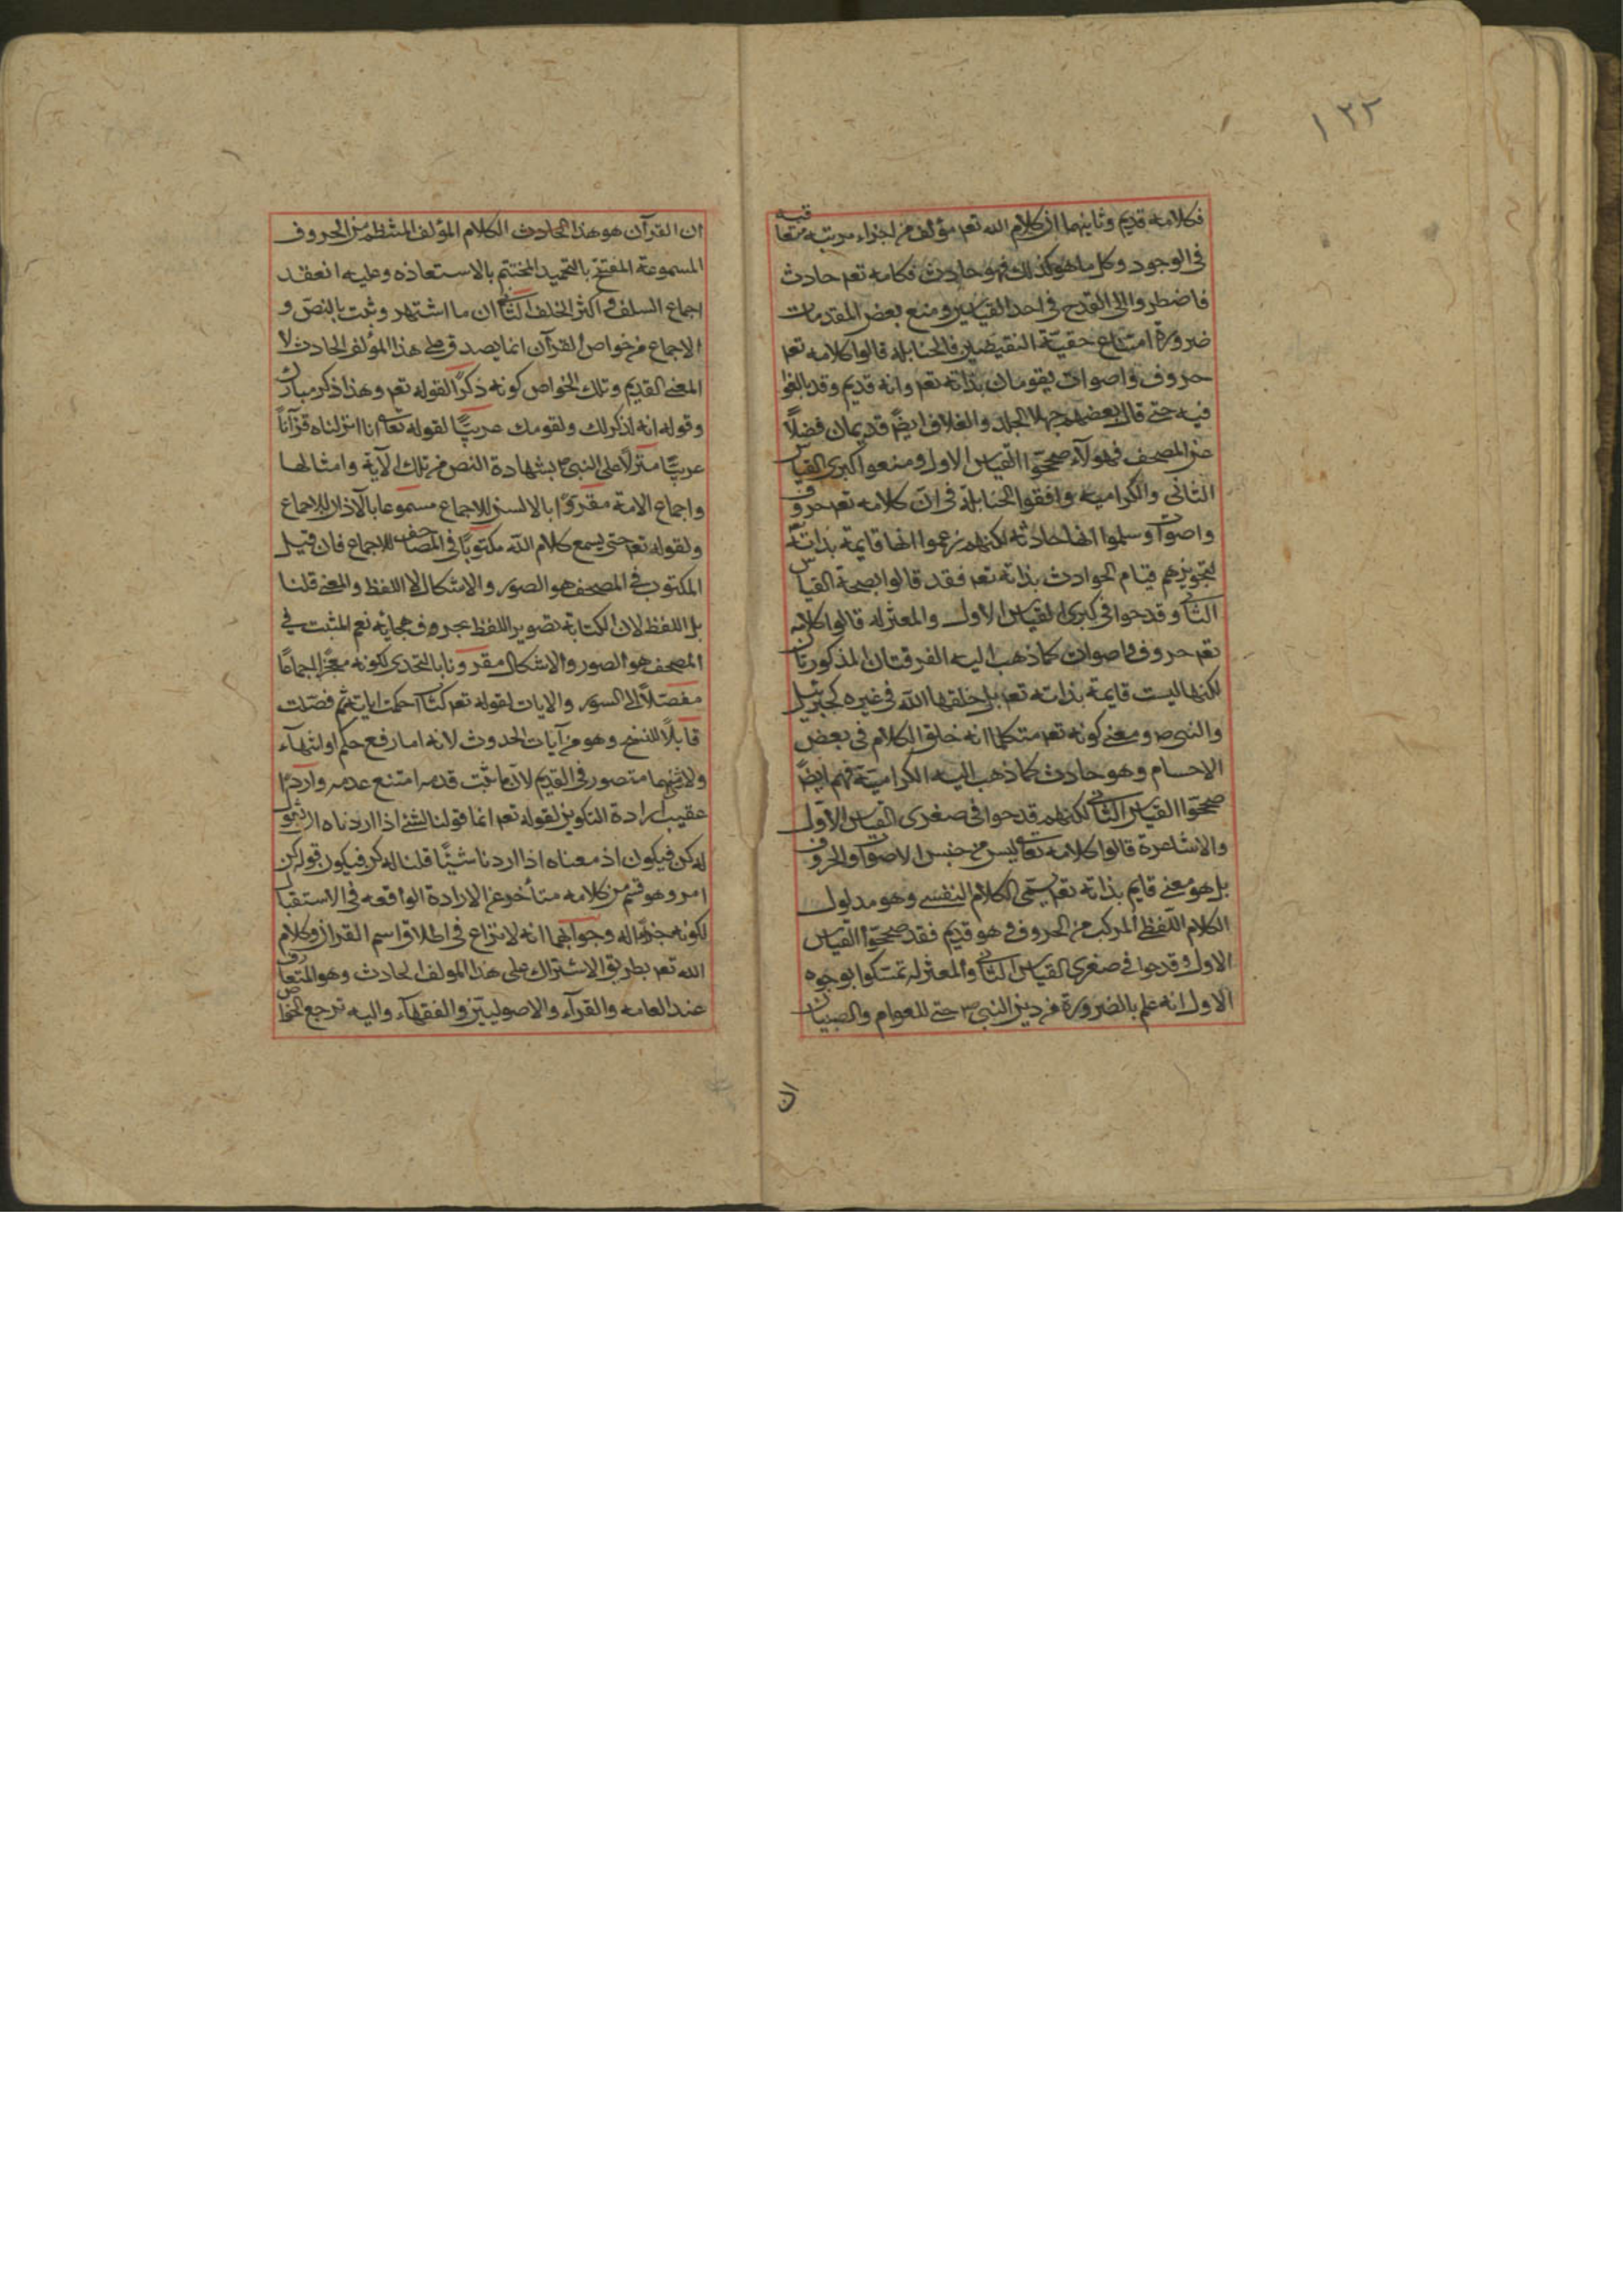 ١٣٢
فكلامه قديم وثانيهما ان كلام الله تعم مؤلف من اجزاء مرتبة متعاقبه
في الوجود وكل ما هو كذلك فهو حادث فكلامه تعم حادث
فاضطروا الى القدح في احد القياسين ومنع بعض المقدمات
ضرورة امتناع حقيّة النقيضين فالحنابلة قالوا كلامه تعم
حروف واصوات يقومان بذاته تعم وانه قديم وقد بالغوا
فيه حتى قال بعضهم جهلا الجلد والغلاف ايضًا قديمان فضلًا
عن المصحف فهولآء صححّوا القياس الاول ومنعوا كبرى القياس
الثانى والكرامية وافقوا الحنابلة فى انّ كلامه تعم حروف
واصوات وسلموا انها حادثة لكنهم زعموا انها قايمة بذاته
لتجويزهم قيام الحوادث بذاته تعم فقد قالوا بصحة القياس
الثانى وقدحوا فى كبرى القياس الاول والمعتزله قالوا كلامه
تعم حروف واصوات كما ذهب اليه الفرقتان المذكورتان
لكنها ليست قايمة بذاته تعم بل خلقها الله فى غيره كجبرئيل
والنبى ص ومعنى كونه تعم متكلما انه خلق الكلام فى بعض
الاجسام وهو حادث كما ذهب اليه الكراميّة فهم ايضًا
صححّوا القياس الثانى لكنهم قدحوا فى صغرى القياس الاوّل
والاشاعرة قالوا كلامه تعالى ليس من جنس الاصوات والحروف
بل هو معنى قايم بذاته تعم يسمّى الكلام النفسى وهو مدلول
الكلام اللّفظى المركب من الحروف وهو قديم فقد صححّوا القياس
الاول وقدحوا فى صغرى القياس الثانى والمعتزله تمسّكوا بوجوه
الاول انه علم بالضرورة من دين النبى ص حتى للعوام والصبيان
ان
ان القرآن هو هذا الحادث الكلام المؤلف المنتظم من الحروف
المسموعة المفتتح بالتحميد المختتم بالاستعاذه وعليه انعقد
اجماع السلف و اكثر الخلف الثانى ان ما اشتهر وثبت بالنصّ و
الاجماع من خواص القرآن انما يصدق على هذا المؤلف الحادث لا
المعنى القديم وتلك الخواص كونه ذكرًا لقوله تعم وهذا ذكر مبارك
وقوله انه لذكر لك ولقومك عربيًّا لقوله تعالى انا انزلناه قرآنًا
عربيًّا منزلًا على النبى ص بشهادة النص من تلك الآية وامثالها
واجماع الامة مقروًّا بالالسن للاجماع مسموعا بالآذان للاجماع
ولقوله تعم حتى يسمع كلام الله مكتوبًا فى المصاحف للاجماع فان قيل
المكتوب فى المصحف هو الصور والاشكال لا اللفظ والمعنى قلنا
بل اللفظ لان الكتابة تصوير اللفظ بحروف هجائه نعم المثبت فى
المصحف هو الصور والاشكال مقرونا بالتحدى لكونه معجزًا اجماعًا
مفصّلًا الى السور والايات لقوله تعم كتاب احكمت آياته ثم فصّلت
قابلًا للنسخ وهو من آيات الحدوث لانه اما رفع حكم او انتهآء
ولا شئ منهما متصور فى القديم لان ما ثبت قدمه امتنع عدمه واردًا
عقيب ارادة التكوين لقوله تعم انما قولنا لشئ اذا اردناه ان نقول
له كن فيكون اذ معناه اذا اردنا شيئًا قلنا له كن فيكون قوله كن
امر وهو قسم من كلامه متأخر عن الارادة الواقعه فى الاستقبال
لكونه جزآء له وجوابهما انه لا نزاع فى اطلاق اسم القرآن وكلام
الله تعم بطريق الاشتراك على هذا المولف الحادث وهو المتعارف
عند العامه والقرآء والاصوليّين والفقهآء واليه ترجع الخواص